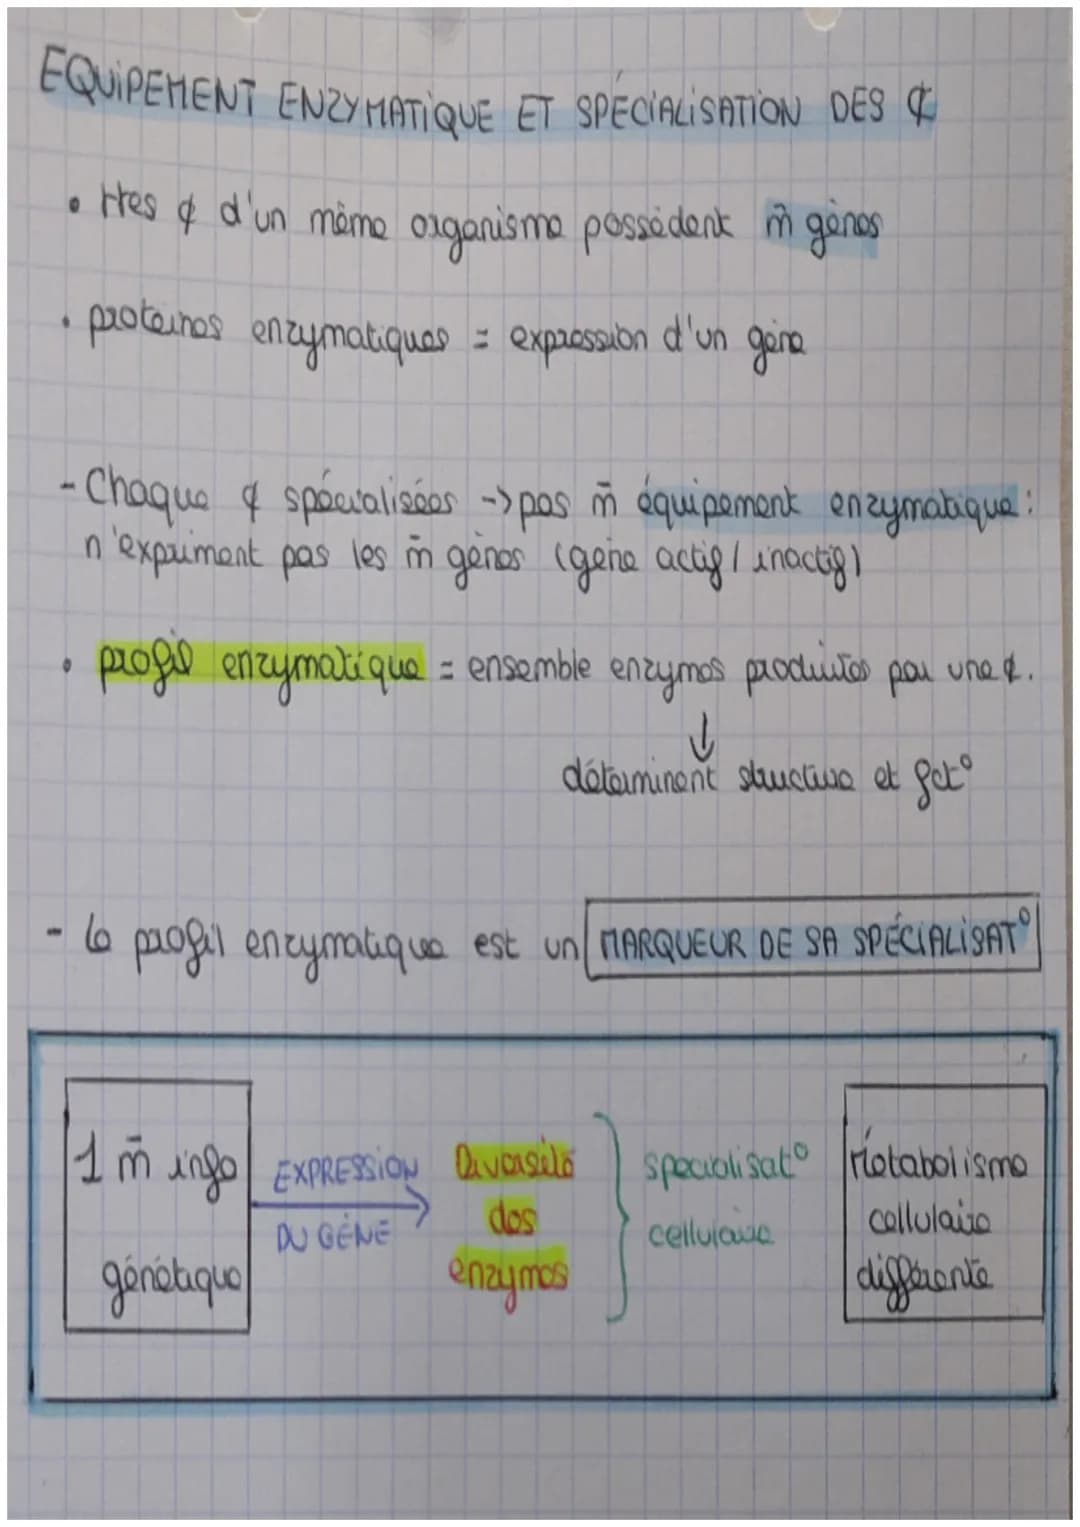 EQUIPEMENT ENZYMATIQUE ET SPÉCIALISATION DES ¢
• ttes ¢ d'un même organisme possèdent m̃ gènes
• proteines enzymatiques = expression d'un gène
- Chaque ¢ spécialisées -> pas m̃ équipement enzymatique :
n'expriment pas les m̃ gènes (gene actif / inactif)
• profil enzymatique = ensemble enzymes produites par une ¢.
↓
déterminent structure et fct°
- le profil enzymatique est un MARQUEUR DE SA SPÉCIALISAT°
1 m̃ info
génétique
EXPRESSION
DU GÉNE
Diversité
des
enzymes
specialisat°
cellulaire
Métabolisme
cellulaire
différente